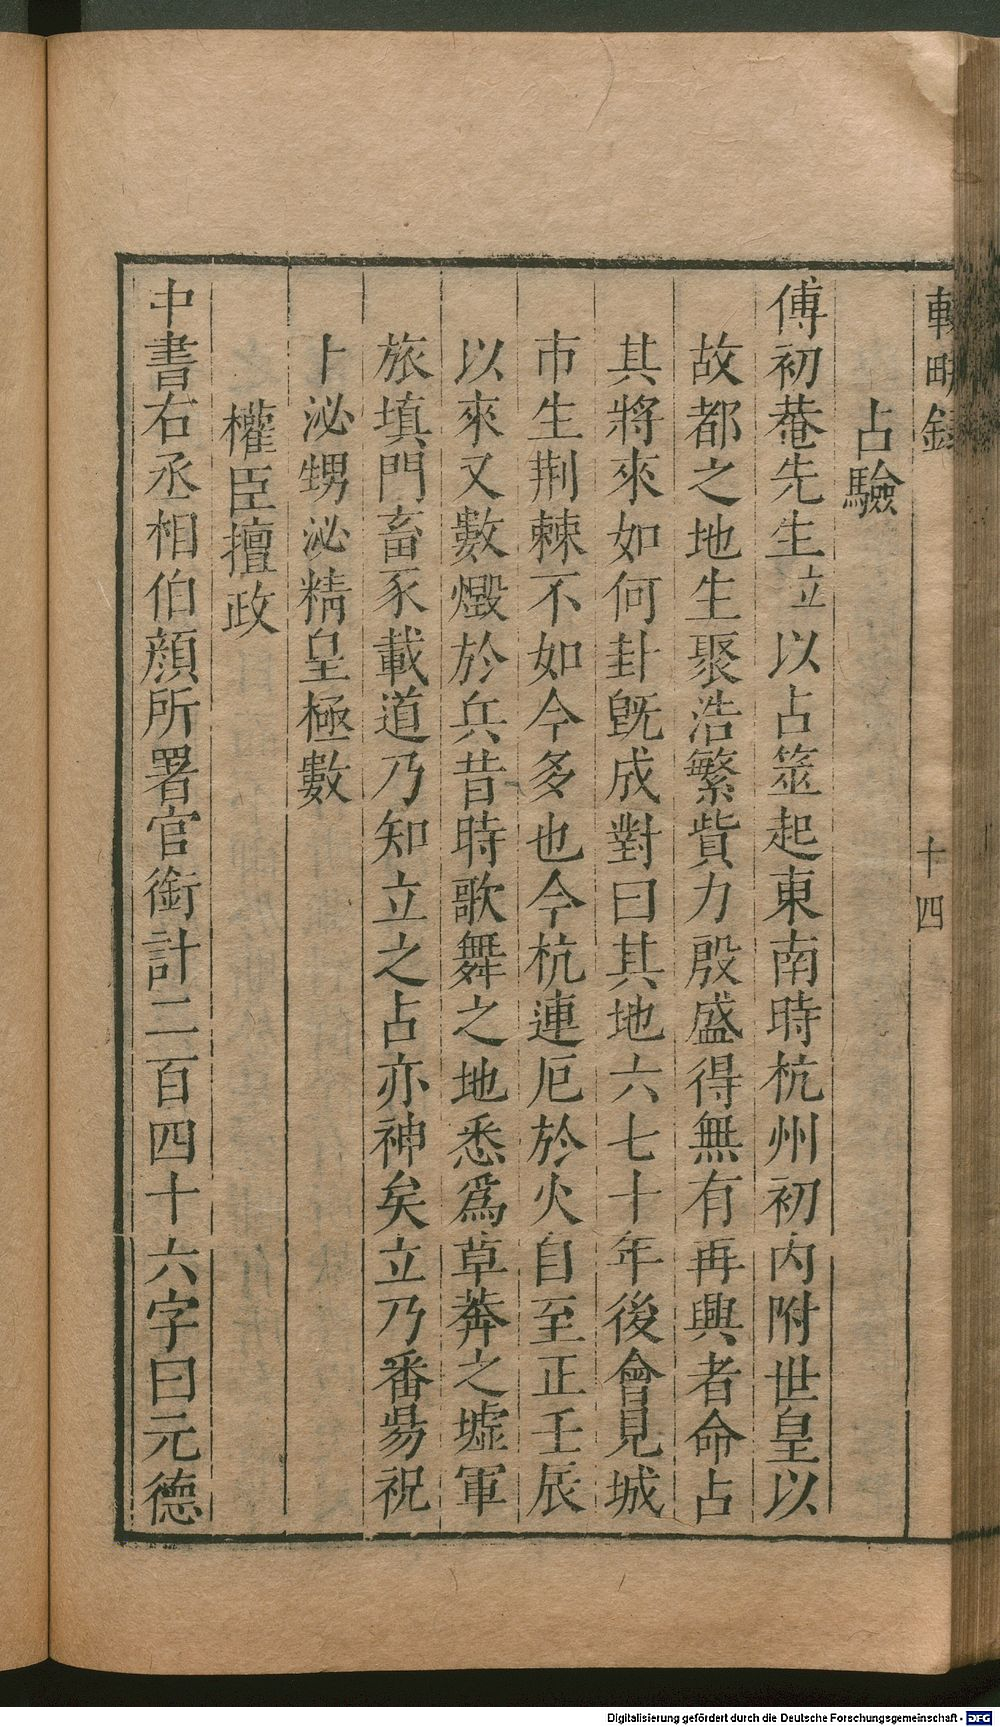 輟畊錄
十四
占驗
傅初菴先生立以占筮起東南時杭州初內附世皇以
故都之地生聚浩繁貲力殷盛得無有再興者命占
其將來如何卦旣成對曰其地六七十年後會見城
市生荆棘不如今多也今杭連厄於火自至正壬辰
以來又數燬於兵昔時歌舞之地悉爲草莽之墟軍
旅填門畜豕載道乃知立之占亦神矣立乃番昜祝
卜泌甥泌精皇極數
權臣擅政
中書右丞相伯顔所署官銜計二百四十六字曰元德
Digitalisierung gefördert durch die Deutsche Forschungsgemeinschaft - DFG